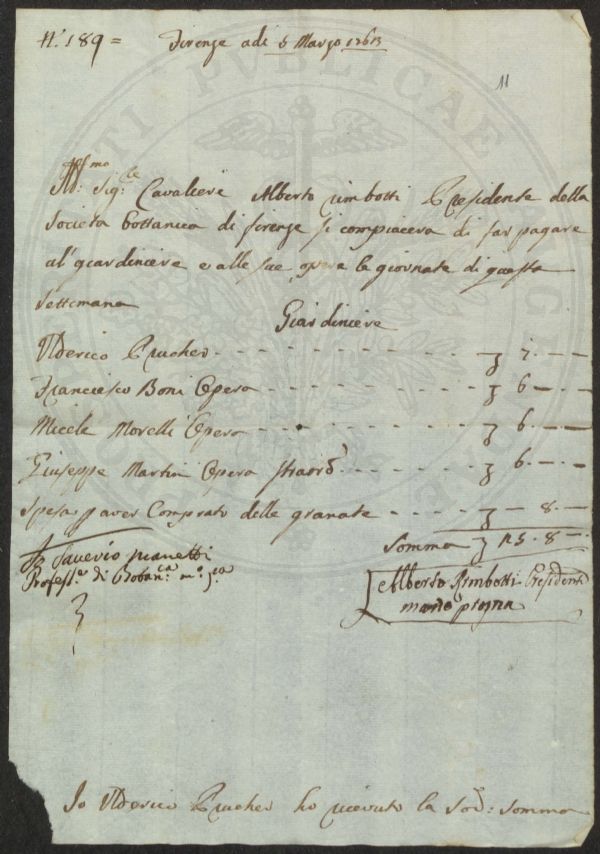 N.° 189 =
Firenze adi 5 Marzo 1763
11
Ill:mo Sig:le Cavaliere Alberto Rimbotti Presidente della
Societa bottanica di firenze si compiacera di far pagare
al' giardiniere e alle sue opera le giornate di questa
Settimana
Giardiniere
Ulderico Prucher - - - - - - - - 7. —
Francesco Boni Opera - - - - - - - 6 — . —
Micele Morelli Opera - - - - - - - 6 — . —
Giuseppe Martin Opera straord. - - - - - - 6 — . —
Spesa p aver Comprato delle granate - - - - — 8. —
Somma 25. 8 —
Saverio Manetti
Profess.e di Botan.ca m.o p.a
Alberto Rimbotti Presidente
mano propria
PUBLICAE
Io Ulderico Prucher ho ricevuto la Sod: Somma